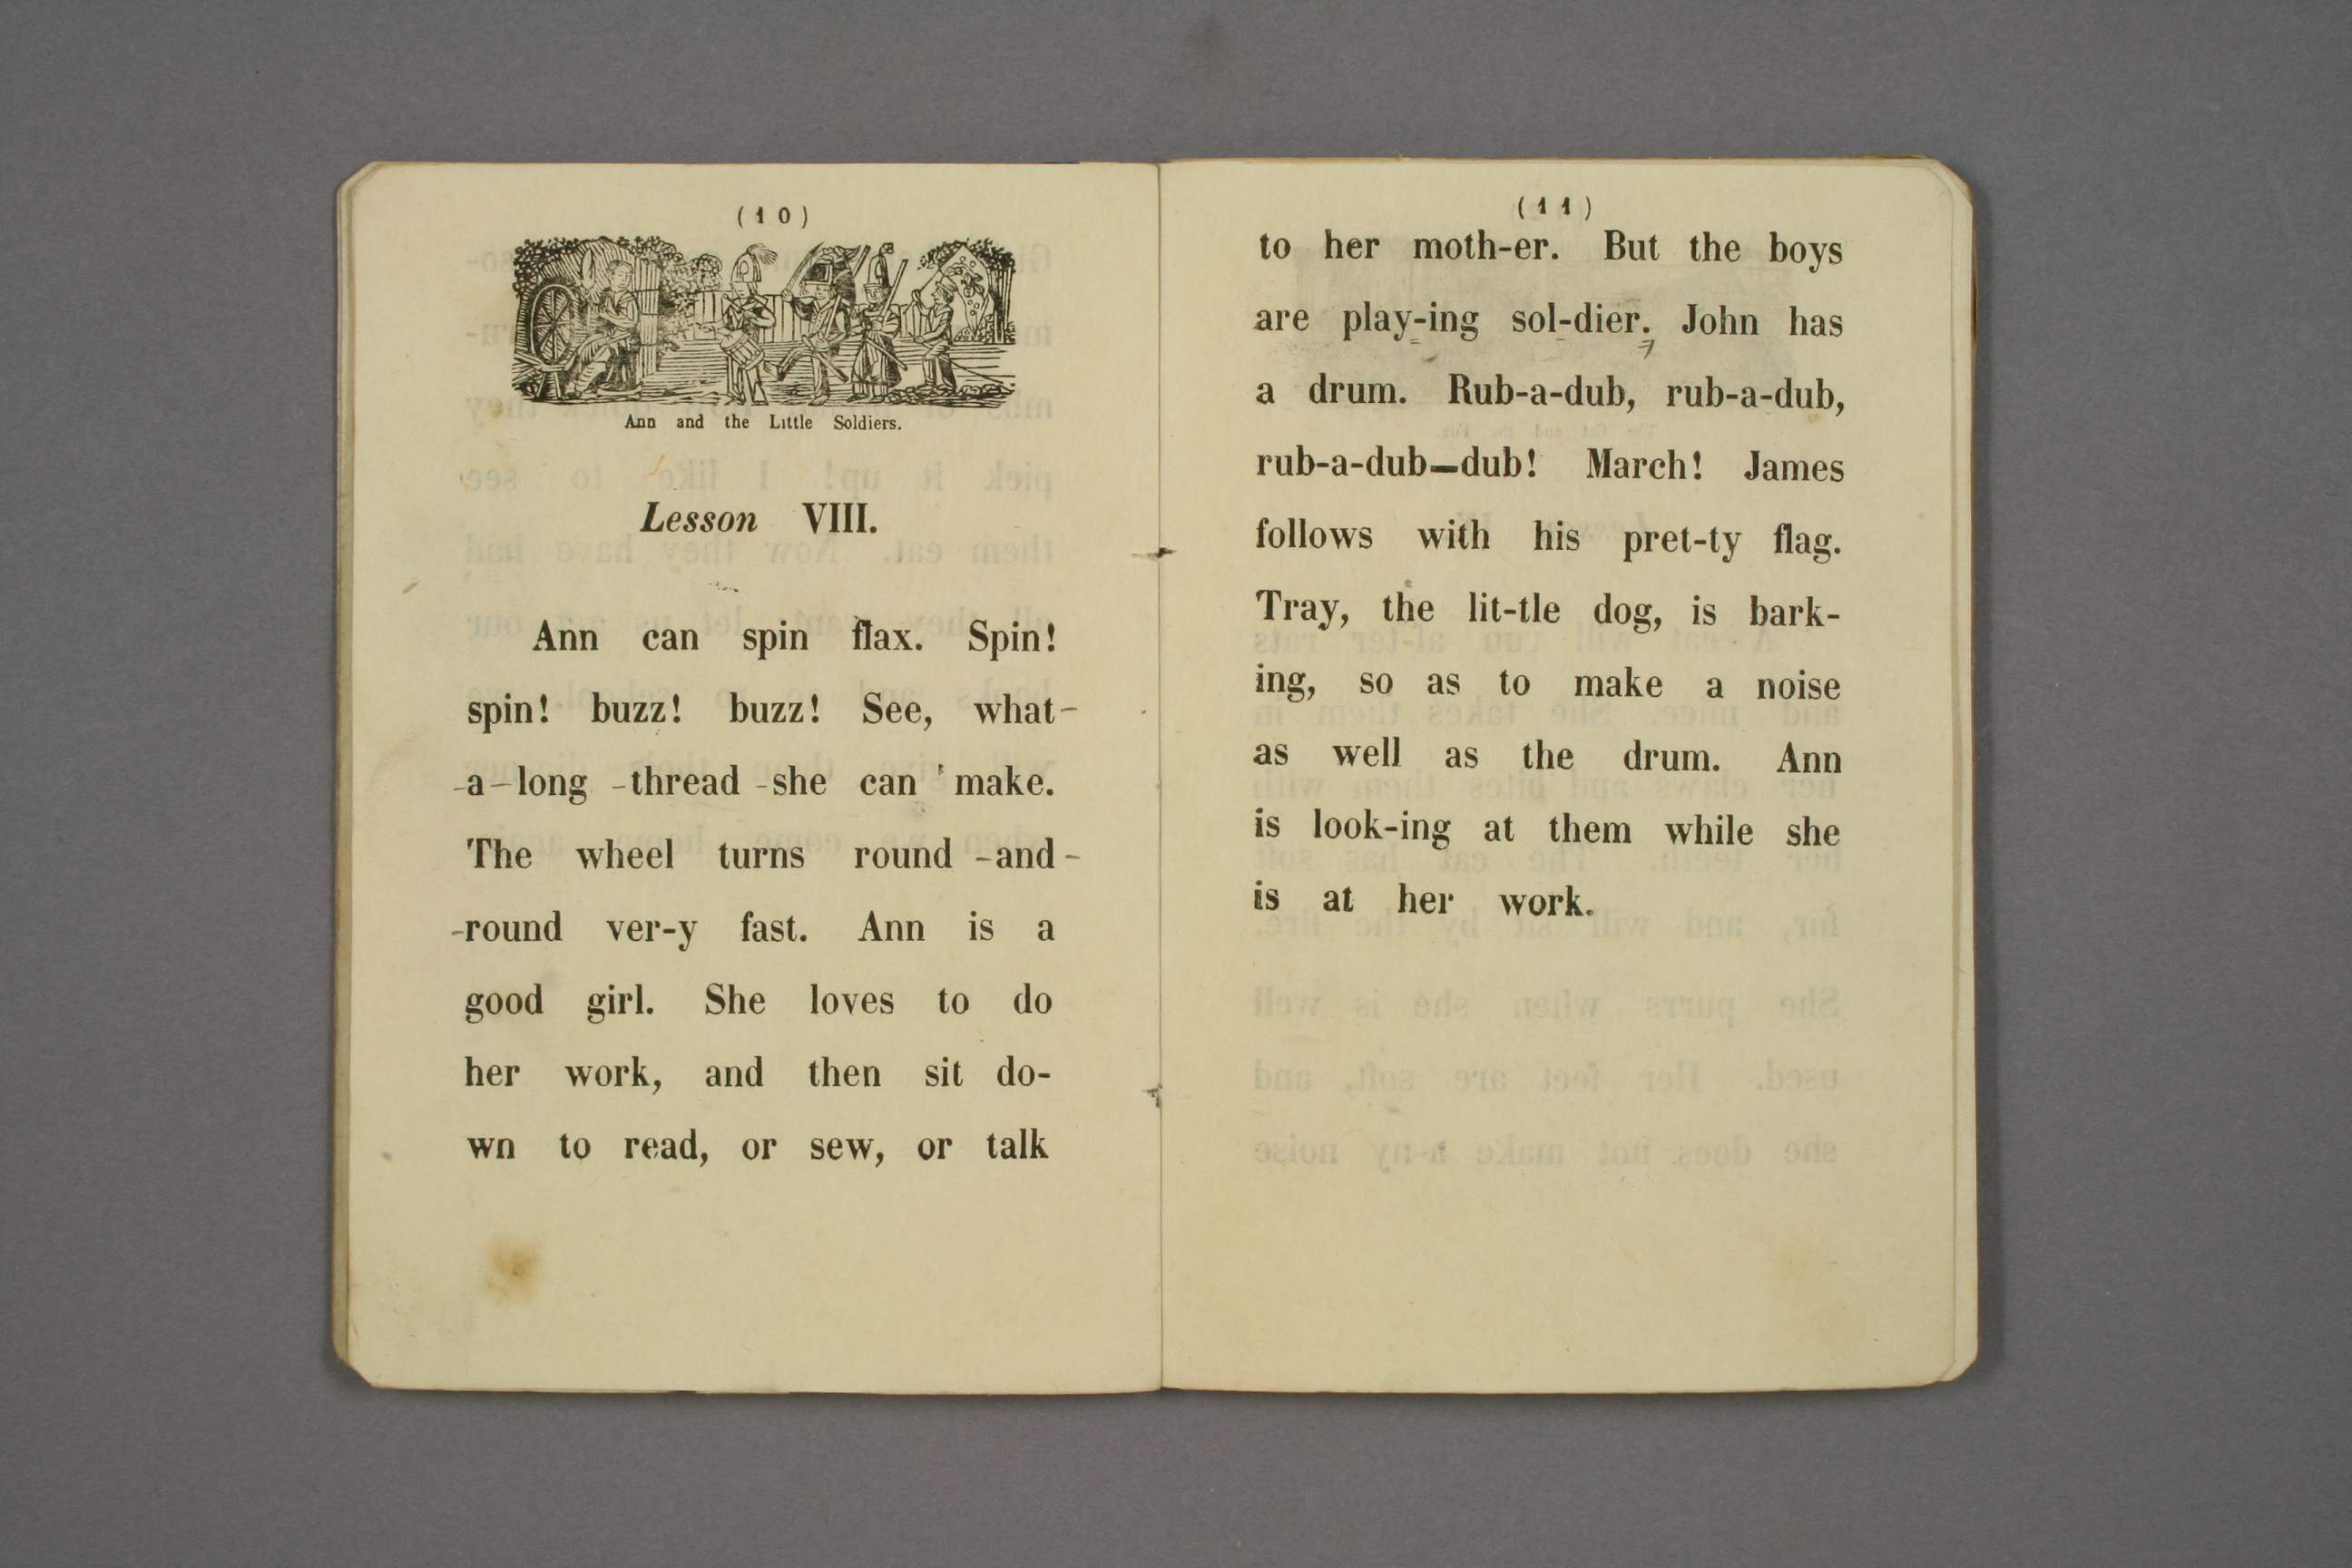 (10)
Ann and the Little Soldiers.
Lesson VIII.
Ann can spin flax. Spin!
spin! buzz! buzz! See, what-
-a-long -thread -she can make.
The wheel turns round -and-
-round ver-y fast. Ann is a
good girl. She loves to do
her work, and then sit do-
wn to read, or sew, or talk
(11)
to her moth-er. But the boys
are play-ing sol-dier. John has
a drum. Rub-a-dub, rub-a-dub,
rub-a-dub—dub! March! James
follows with his pret-ty flag.
Tray, the lit-tle dog, is bark-
ing, so as to make a noise
as well as the drum. Ann
is look-ing at them while she
is at her work.